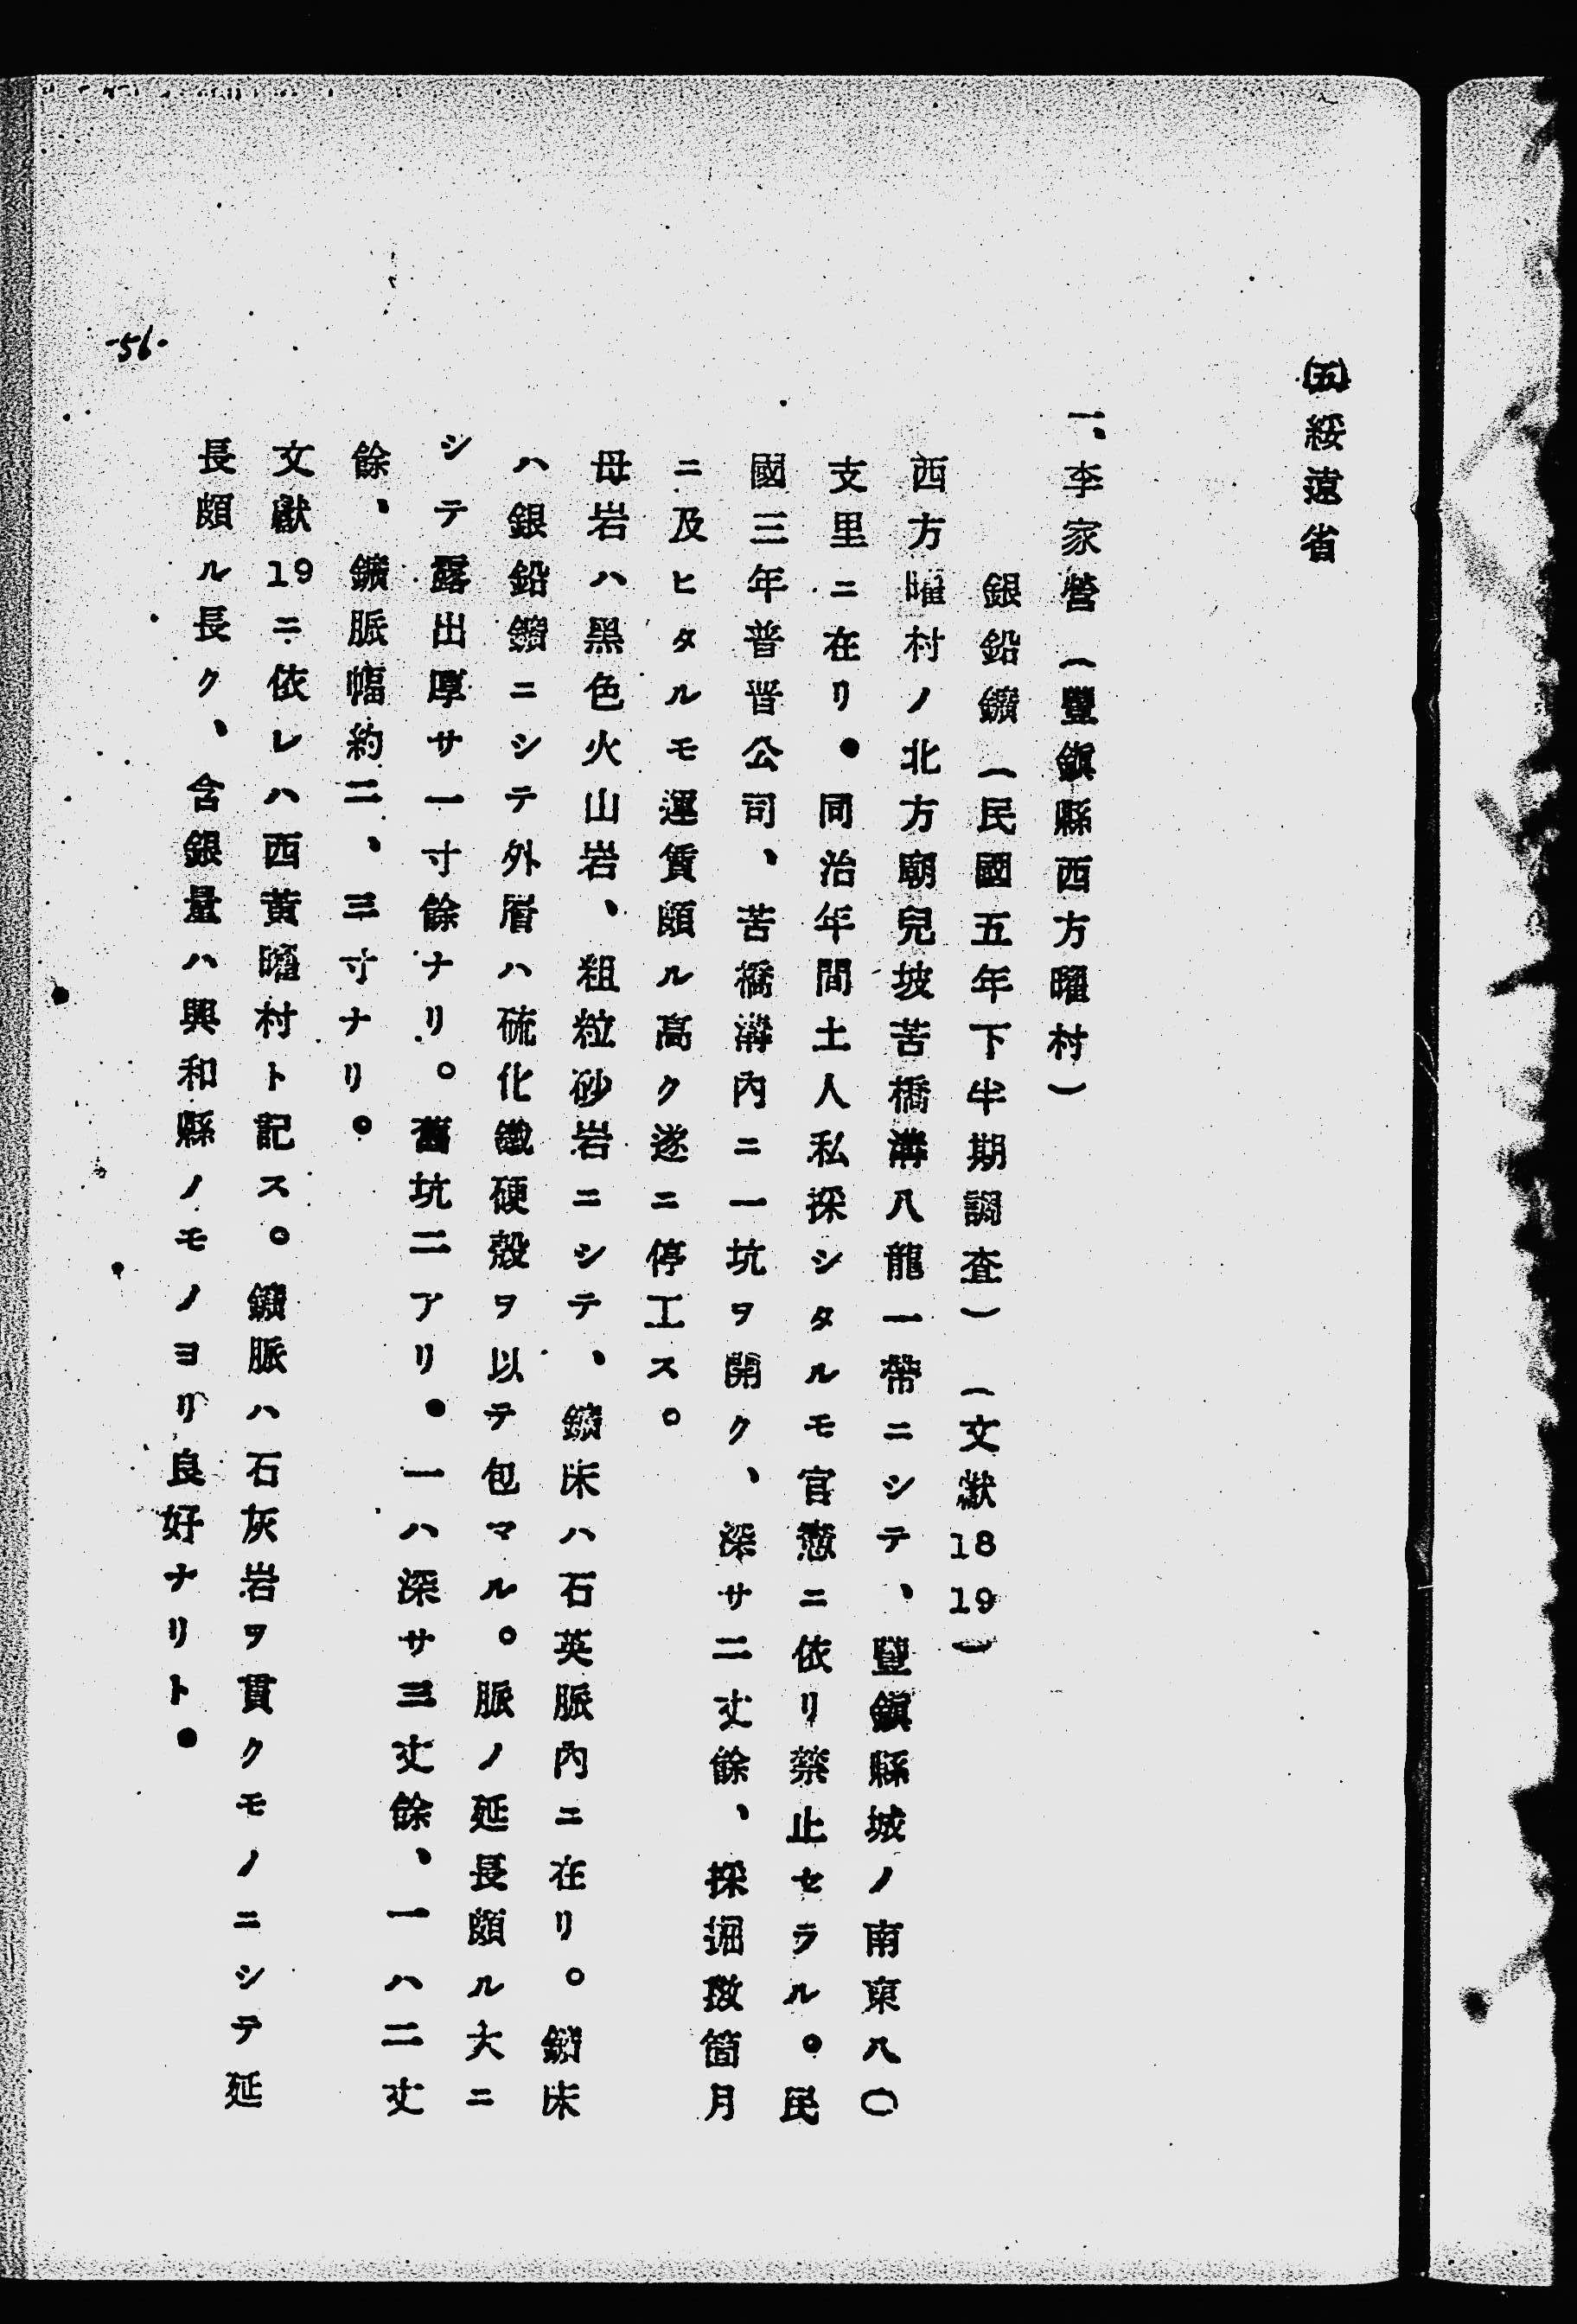 ㈤綏遠省
一、李家營（豐鎭縣西方曜村）
銀鉛鑛（民國五年下半期調査）（文献18 19）
西方曜村ノ北方廟兒坡苦橋溝八龍一帶ニシテ、豐鎭縣城ノ南東八〇
支里ニ在リ。同治年間土人私採シタルモ官憲ニ依リ禁止セラル。民
國三年普晋公司、苦橋溝內ニ一坑ヲ開ク、深サ二丈餘、採掘數箇月
ニ及ヒタルモ運賃頗ル高ク遂ニ停工ス。
母岩ハ黑色火山岩、粗粒砂岩ニシテ、鑛床ハ石英脈內ニ在リ。鑛床
ハ銀鉛鑛ニシテ外層ハ硫化鐵硬殼ヲ以テ包マル。脈ノ延長頗ル大ニ
シテ露出厚サ一寸餘ナリ。舊坑二アリ。一ハ深サ三丈餘、一ハ二丈
餘、鑛脈幅約二、三寸ナリ。
文獻19ニ依レハ西黃曜村ト記ス。鑛脈ハ石灰岩ヲ貫クモノニシテ延
長頗ル長ク、含銀量ハ興和縣ノモノヨリ良好ナリト。
-56-